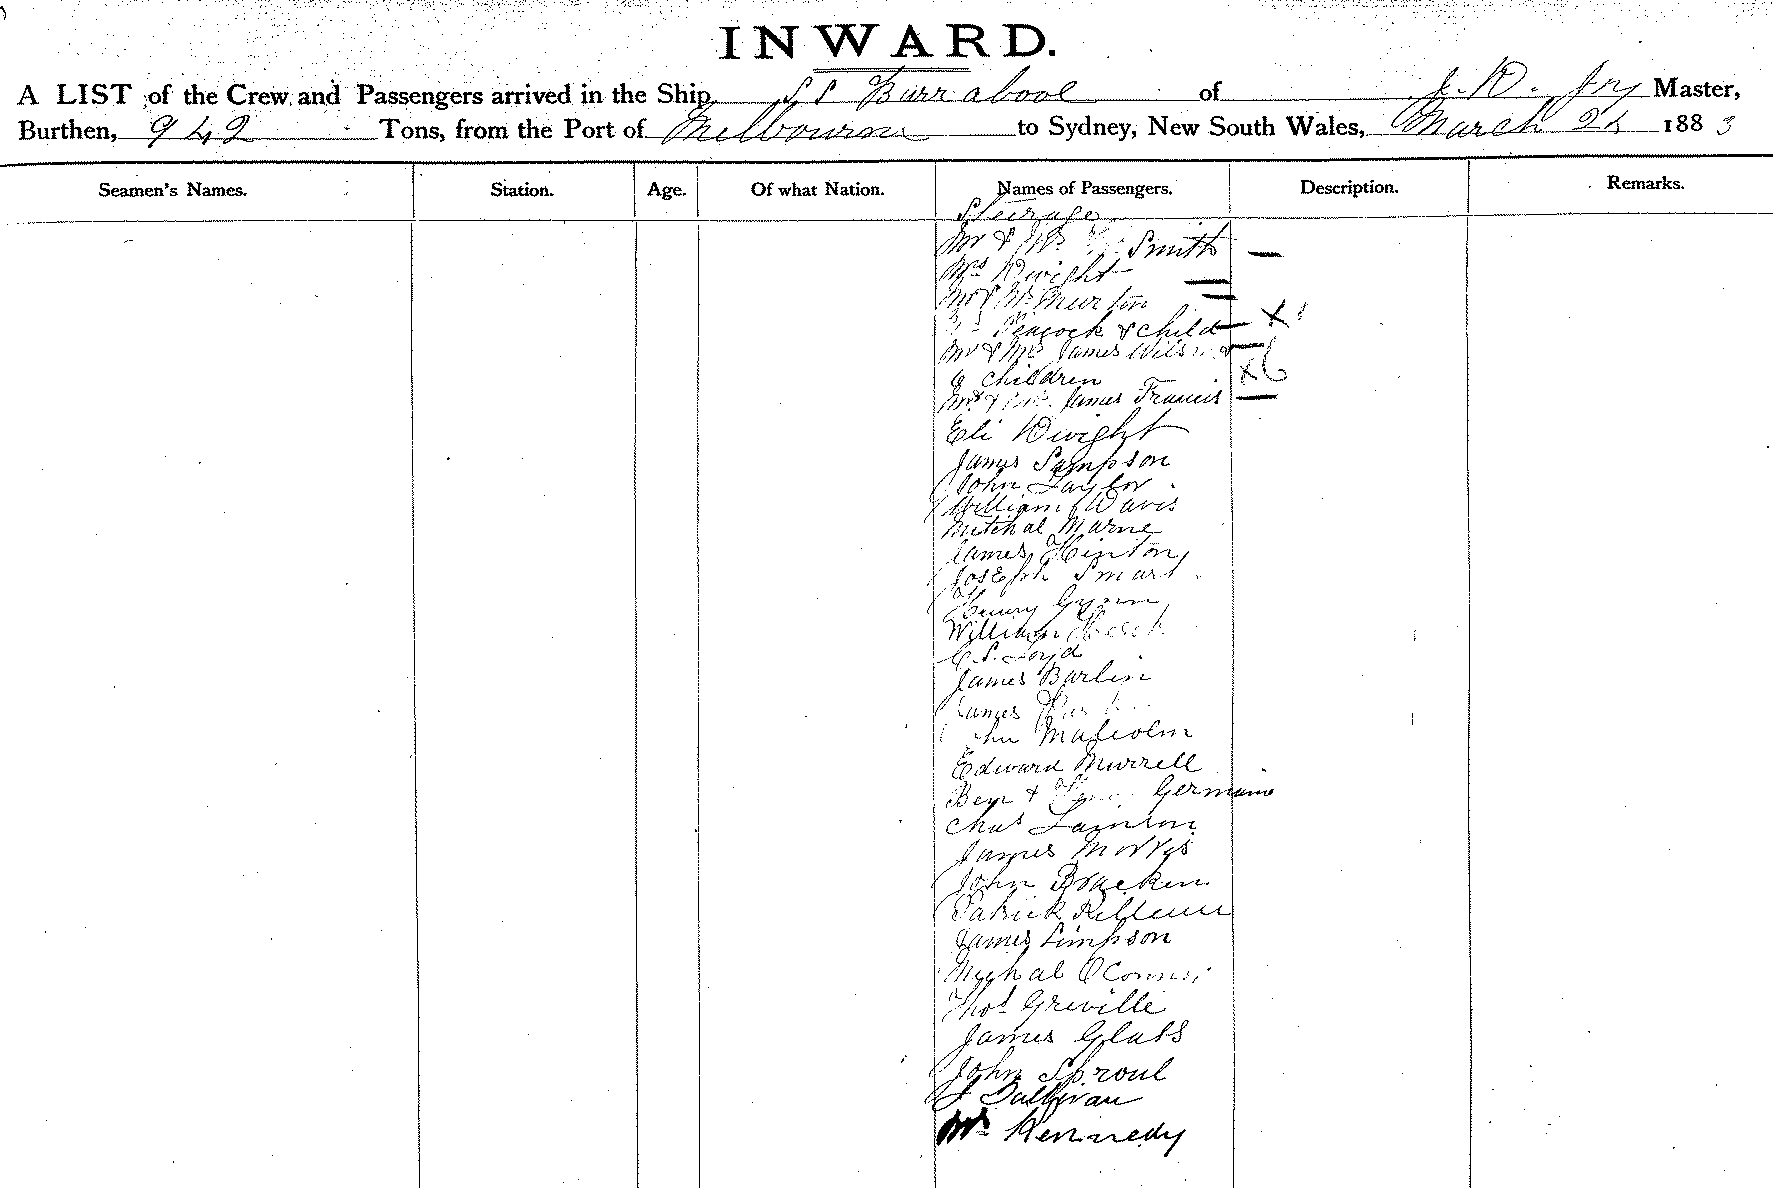 INWARD.
A LIST of the Crew and Passengers arrived in the Ship SS Burrabool of J. R. Fry Master,
Burthen, 942 Tons, from the Port of Melbourne to Sydney, New South Wales, March 24 1883
Seamen's Names. Station. Age. Of what Nation. Names of Passengers. Description. Remarks.
Steerage
Mr & Mrs Smith
Mrs Dwight
Mr & Mrs Murton
Peacock & child
Mr & Mrs James Wilson &
children
Mr & Mrs James Francis
Eli Dwight
James Sampson
John Taylor
William Davis
Mitchal Marne
James Hinton
Joseph Smart
Henry Gynn
William
C. S. Loyd
James Barlin
James
John Malcolm
Edward Murrell
Benj & Germaine
Chas Lamson
James Morris
John Bracken
Patrick
James Simpson
Mychal OConnor
Thos Greville
James Glass
John Sproul
J Sullivan
Mrs Kennedy